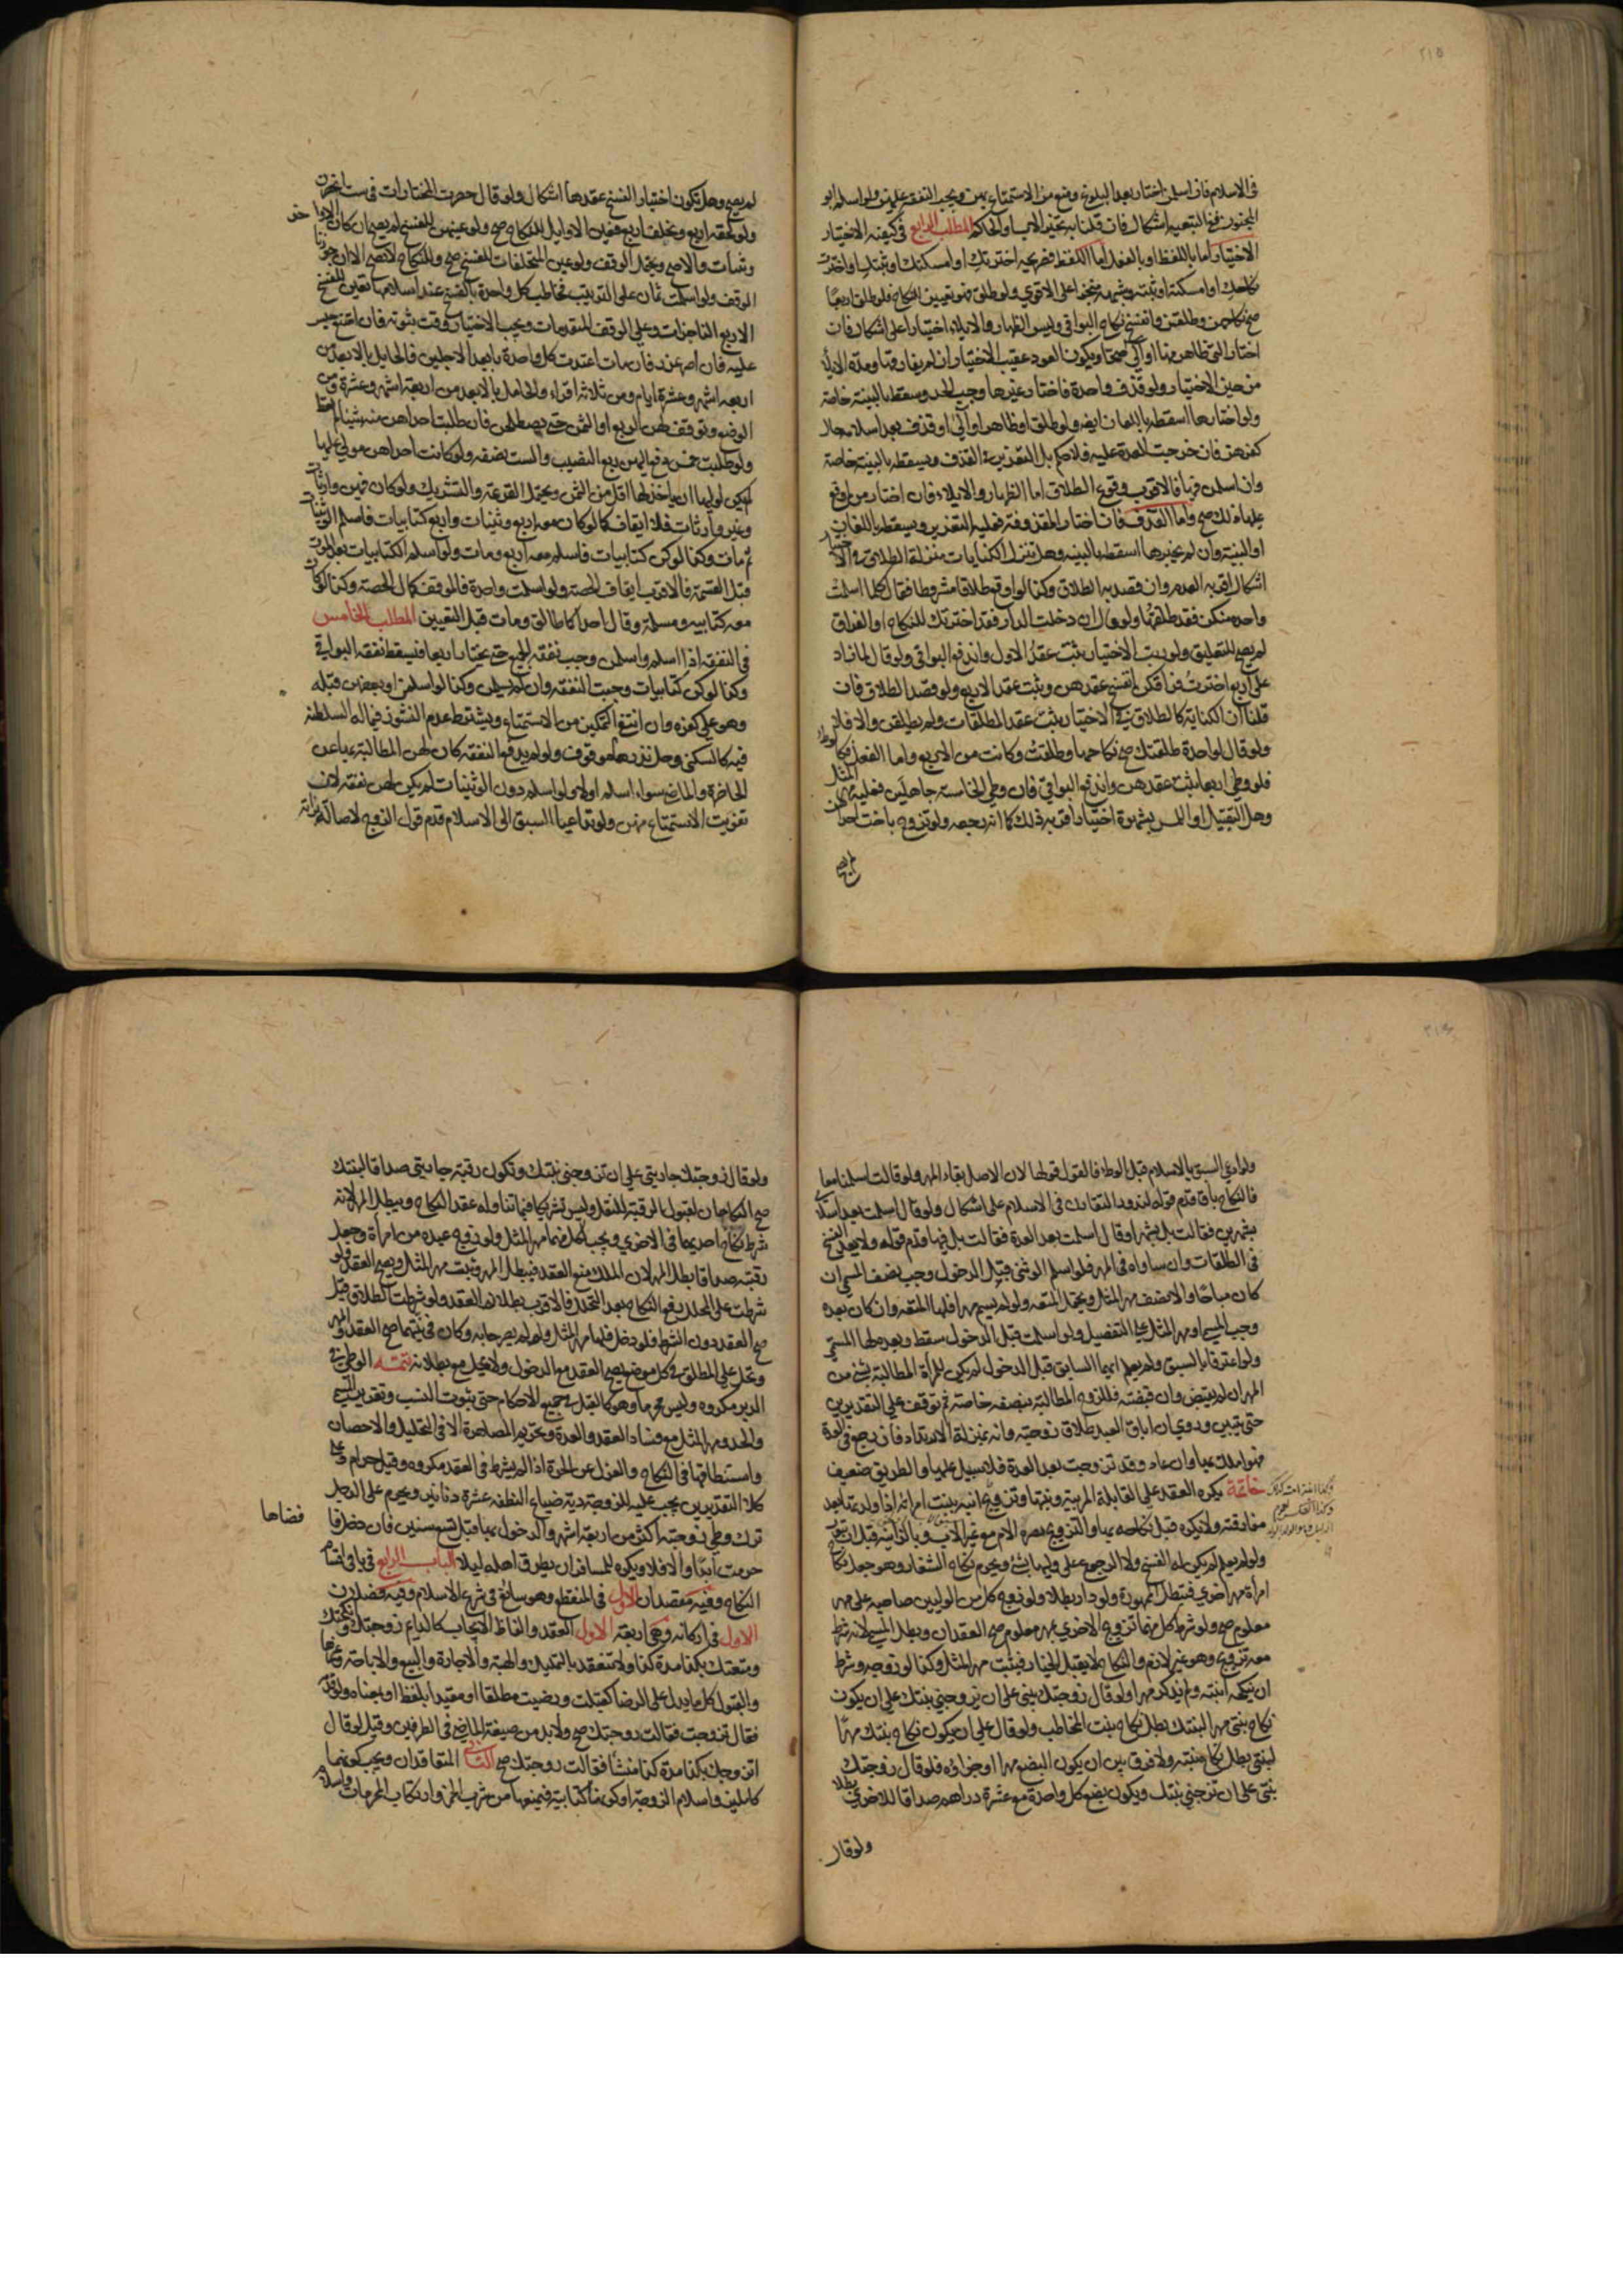 ٢١٥
في الاسلام فان اسلمن اختار بعد البلوغ ومنع من الاستمتاع بهن ويجب النفقة عليهن ولو اسلم ابو
المجنون ففي التبعية اشكال فان قلنا به تخير الاب او الحاكم المطلب الرابع في كيفية الاختيار
الاختيار اما باللفظ او بالفعل اما اللفظ فصريحه اخترتك او امسكتك وثبتك او اخترت
نكاحك او امسكته او ثبته وشبهه منجزا على الاقوى ولو طلق فهو تعيين النكاح فلو طلق اربعا
صح نكاحهن وطلقن وانفسخ نكاح البواقي وليس الظهار والايلاء اختيارا على اشكال فان
اختار التي ظاهر منها او آلى صحتا ويكون العود عقيب الاختيار ان لم يفارقها ومدة الايلاء
من حين الاختيار ولو قذف واحدة فاختار غيرها وجب الحد وسقط بالبينة خاصة
ولو اختارها اسقطه باللعان ايضا ولو طلق او ظاهر او آلى او قذف بعد اسلامه حال
كفرهن فان خرجت العدة عليه فلا حكم بل التعزير في القذف ويسقطه بالبينة خاصة
وان اسلمن فيها فالاقرب وقوع الطلاق اما الظهار والايلاء فان اختار من اوقع
عليها ذلك صح واما القذف فان اختار المقذوفة فعليه التعزير ويسقط باللعان
او البينة وان لم يخترها اسقطه بالبينة وهل تنزل الكنايات منزلة الطلاق في الاختيار
اشكال اقربه العدم وان قصد به الطلاق وكذا لو اوقع طلاقا مشروطا فقال كلما اسلمت
واحدة منكن فقد طلقتها ولو قال ان دخلت الدار فقد اخترتك للنكاح او الفراق
لم يصح للتعليق ولو رتب الاختيار ثبت عقد الاول واندفع البواقي ولو قال لما زاد
على اربع اخترت فراقكن انفسخ عقدهن وثبت عقد الاربع ولو قصد الطلاق فان
قلنا ان الكناية كالطلاق في الاختيار ثبت عقد المطلقات ولم يطلقن والا فلا
ولو قال لواحدة طلقتك صح نكاحها وطلقت وكانت من الاربع واما الفعل فكالوطء
فلو وطي اربعا ثبت عقدهن واندفع البواقي فان وطي الخامسة جاهلا فعليه مهر المثل
وهل التقبيل او اللمس بشهوة اختيار اقربه ذلك كما انه رجعة ولو تزوج باخت احداهن
لم يصح
لم يصح وهل تكون اختيار الفسخ عقدها اشكال ولو قال حصرت المختارات في ست انحصرن
ولو لحقه اربع وتخلف اربع فعين الاوايل للنكاح صح ولو عينهن للفسخ لم يصح ان كان الاواخر
وثنيات والا صح ويحتمل الوقف ولو عين المتخلفات للفسخ صح وللنكاح لا تصح الا ان جوزنا
الوقف ولو اسلمت ثمان على الترتيب فخاطب كل واحدة بالفسخ عند اسلامها تعين للفسخ
الاربع المتاخرات وعلى الوقف المتقدمات ويجب الاختيار وقت ثبوته فان امتنع حبس
عليه فان اصر عزر فان مات اعتدت كل واحدة بابعد الاجلين فالحايل بالابعد من
اربعة اشهر وعشرة ايام ومن ثلاثة اقراء والحامل بالابعد من اربعة اشهر وعشرة ومن
الوضع وتوقف لهن الربع او الثمن حتى يصطلحن فان طلبت احداهن منه شيئا لم تعط
ولو طلبت خمس دفع اليهن ربع النصيب والست نصفه ولو كانت احداهن مولى عليها
لم يكن لوليها ان ياخذ لها اقل من الثمن ويحتمل القرعة والتشريك ولو كان فيهن وارثات
وغير وارثات فلا ايقاف كما لو كان معه اربع وثنيات واربع كتابيات فاسلم الوثنيات
ثم مات وكذا لو كن كتابيات فاسلم معه اربع ومات ولو اسلم الكتابيات بعد الموت
قبل القسمة فالاقرب ايقاف الحصة ولو اسلمت واحدة فالموقف كمال الحصة وكذا لو كان
معه كتابية ومسلمة وقال احداكما طالق ومات قبل التعيين المطلب الخامس
في النفقة اذا اسلم واسلمن وجب نفقة الجميع حتى يختار اربعا فيسقط نفقة البواقي
وكذا لو كن كتابيات وجبت النفقة وان لم يسلمن وكذا لو اسلمن او بعضهن قبله
وهو على كفره وان انتفى التمكين من الاستمتاع ويشترط عدم النشوز فيما له السلطنة
فيه كالسكنى وحل نذرها موقوف ولو لم يدفع النفقة كان لهن المطالبة بها عن
الحاضرة والماضي سواء اسلم اولا ولو اسلم دون الوثنيات لم يكن لهن نفقة لان
تفويت الاستمتاع منهن ولو تداعيا السبق الى الاسلام قدم قول الزوج لاصالة براءته
ولو ادعى السبق بالاسلام قبل الوطء فالقول قولها لان الاصل بقاء المهر ولو قالت اسلمنا معا
فالنكاح باق قدم قوله لندور التقارن في الاسلام على اشكال ولو قال اسلمت بعد اسلامي
بشهرين فقالت بل بشهر او قال اسلمت بعد العدة فقالت بل فيها قدم قوله ولا يعد الفسخ
في الطلقات وان ساواه في المهر فلو اسلم الوثني قبل الدخول وجب نصف المسمى ان
كان مباحا والا نصف مهر المثل ويحتمل المتعة ولو لم يسم مهرا فلها المتعة وان كان بعده
وجب المسمى او مهر المثل على التفصيل ولو اسلمت قبل الدخول سقط وبعده لها المسمى
ولو اعترفا بالسبق ولم يعلم ايهما السابق قبل الدخول لم يكن للمرأة المطالبة بشيء من
المهر ان لم يقبض وان قبضته فللزوج المطالبة بنصفه خاصة ثم توقف على التقديرين
حتى يتبين وروي ان اباق العبد طلاق زوجته وانه بمنزلة الارتداد فان رجع في العدة
فهو املك بها وان عاد وقد تزوجت بعد العدة فلا سبيل عليها والطريق ضعيف
خاتمة يكره العقد على القابلة المربية وبنتها وتزويج ابنه ببنت امرأته اذا ولدتها بعد
مفارقته ولا يكره قبل نكاحه بها والتزويج بضرة الام مع غير الاب وبالزانية قبل ان تتوب
ولو لم يعلم لم يكن له الفسخ ولا الرجوع على وليها بشيء ويحرم نكاح الشغار وهو جعل نكاح
امرأة مهر اخرى فيبطل الممهورة ولو دار بطلا ولو زوج كل من الوليين صاحبه على مهر
معلوم صح ولو شرط كل منهما تزويج الاخرى بمهر معلوم صح العقدان وبطل المسمى لانه شرط
معه تزويج وهو غير لازم والنكاح لا يقبل الخيار فيثبت مهر المثل وكذا لو زوجه وشرط
ان ينكحه ابنته ولم يذكر مهرا ولو قال زوجتك بنتي على ان تزوجني بنتك على ان يكون
نكاح بنتي مهرا لبنتك بطل نكاح بنت المخاطب ولو قال على ان يكون نكاح بنتك مهرا
لبنتي بطل نكاح بنته ولا فرق بين ان يكون البضع مهرا او جزاؤه فلو قال زوجتك
بنتي على ان تزوجني بنتك ويكون بضع كل واحدة مع عشرة دراهم صداقا للاخرى بطلا
ولو قال
ولو قال زوجتك جاريتي على ان تزوجني بنتك وتكون رقبة جاريتي صداقا لبنتك
صح النكاحان لقبول الرقبة للنقل وليس تشريكا فيما تناوله عقد النكاح ويبطل المهر لانه
شرط نكاح احديهما في الاخرى ويجب لكل منهما مهر المثل ولو زوج عبده من امرأة وجعل
رقبته صداقا بطل المهر لان الملك منع العقد فيبطل المهر ويثبت مهر المثل ويصح العقد ولو
شرطت على المحلل رفع النكاح بعد التحليل فالاقرب بطلان العقد ولو شرطت الطلاق قيل
صح العقد دون الشرط فلو دخل فلها مهر المثل ولو لم يصرحا به وكان في نيتهما صح العقد والمهر
وتحل على المطلق في كل موضع يصح العقد مع الدخول ولا تحل مع بطلانه تتمة الوطي في
الدبر مكروه وليس محرما وهو كالقبل في جميع الاحكام حتى ثبوت النسب وتقرير المسمى
والحد ومهر المثل مع فساد العقد والعدة وتحريم المصاهرة الا في التحليل والاحصان
واستنطاقها في النكاح والعزل عن الحرة اذا لم يشرط في العقد مكروه وقيل حرام وعلى
كلا التقديرين يجب عليه للزوجة دية ضياع النطفة عشرة دنانير ويحرم على الرجل
ترك وطي زوجته اكثر من اربعة اشهر والدخول بها قبل تسع سنين فان دخل فا
فضاها
حرمت ابدا والا فلا ويكره للمسافر ان يطرق اهله ليلا الباب الرابع في باقي اقسام
النكاح وفيه مقصدان الاول في المنقطع وهو سائغ في شرع الاسلام وفيه فصلان
الاول في اركانه وهي اربعة الاول العقد والفاظ الايجاب كالدايم زوجتك وانكحتك
ومتعتك بكذا مدة كذا ولا تنعقد بالتمليك والهبة والاجارة والبيع والاباحة وغيرها
والقبول كل ما يدل على الرضا كقبلت ورضيت مطلقا او مقيدا بلفظه او بمعناه ولو قدمه
فقال تزوجت فقالت زوجتك صح ولا بد من صيغة الماضي في الطرفين وقيل لو قال
اتزوجك بكذا مدة كذا منشأ فقالت زوجتك صح الثاني المتعاقدان ويجب كونهما
كاملين واسلام الزوجة او كونها كتابية فيمنعها من شرب الخمر وارتكاب المحرمات واسلام